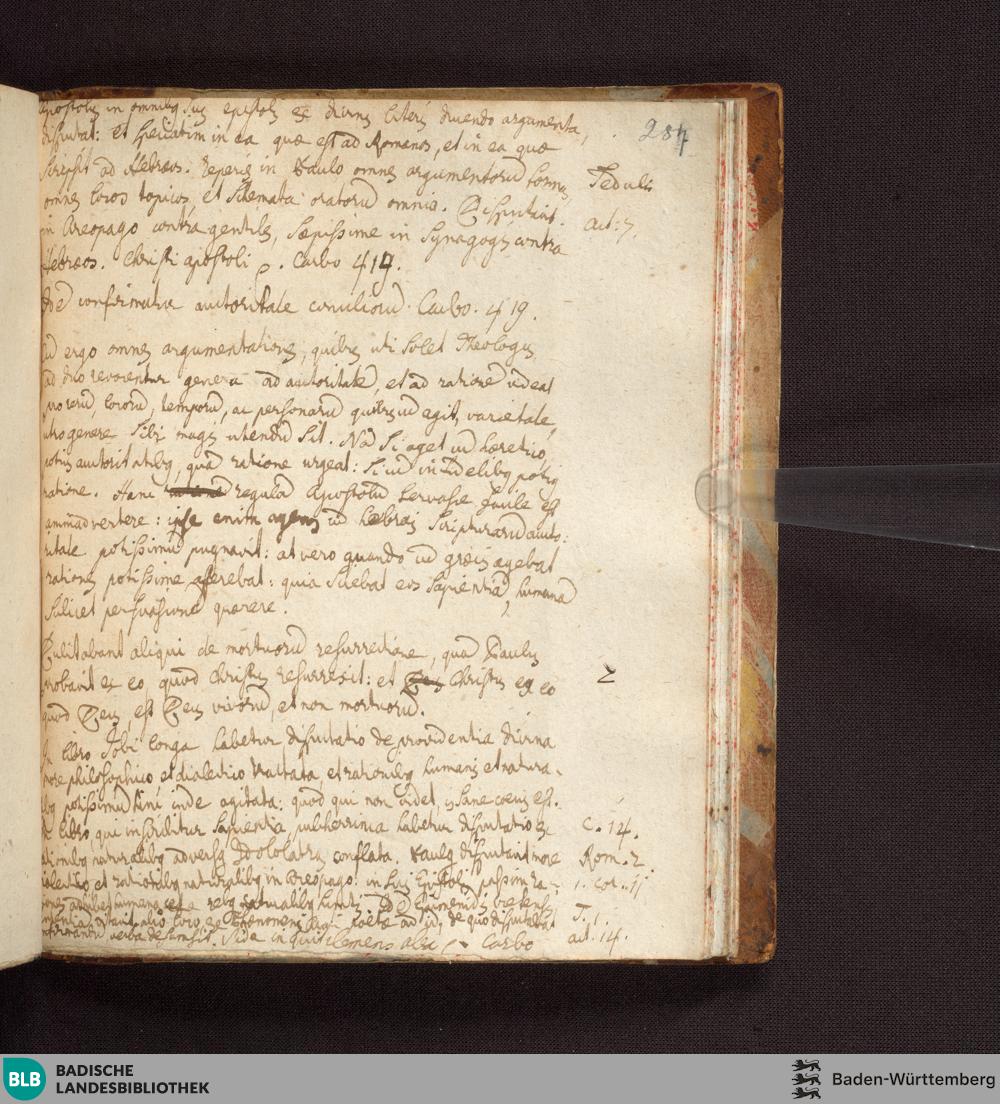 Apostolus in omnibus suis epistolis ex divinis literis ducendo argumenta,
disputat: et speciatim in ea quæ est ad Romanos, et in ea quæ
284
scripsit ad Hebræos. Reperies in Paulo omnes argumentorū formas,
omnes locos topicos, et schemata oratorū omnia. Disputavit
in Areopago contra gentiles, sæpissime in Synagogis contra
act: 7.
Hebræos. Christi apostoli. Carbo 414.
confirmatur autoritate conciliorū. Carbo. 419.
ergo omnes argumentationes, quibus uti solet Theologus,
ad duo revocentur genera ad autoritatē, et ad rationē videat
pro rerū, locorū, temporū, ac personarū quibuscū agit, varietate,
utro genere sibi magis utendū sit. Nā si aget cū hæretico,
potius autoritatibus, quā ratione urgeat: si cū infidelibus potius
ratione. Hanc regulā Apostolū servasse facile est
animadvertere: ipse enim agens cū hebræis scripturarū auto:
ritate potissimū pugnavit: at vero quando cū græcis agebat
rationes potissime afferebat: quia sciebat eos sapientiā, humanā
scilicet persuasionē quærere.
Dubitabant aliqui de mortuorū resurrectione, quā Paulus
probavit ex eo, quod Christus resurrexit: et Christus ex eo
quod Deus, est Deus vivorū, et non mortuorū.
In libro Jobi longa habetur disputatio de providentia divina
more philosophico et dialectico tractata et rationibus humanis et natura-
libus potissimū hinc inde agitata: quod qui non videt, is sane cœcus est.
libro, qui inscribitur Sapientia, pulcherrima habetur disputatio ex
c. 14.
rationibus naturalibus adversus Idololatras conflata. Paulus disputavit more
Rom. 2.
dialectico et rationibus naturalibus in Areopago: in suis Epistolis passim ra-
1. cor. 11
T. 1.
alio loco ex Phenomenis Arati poetæ ad id, de quo disputabat
act. 14.
confirmandū verba desumpsit. Vide inquit Clemens alex. Carbo